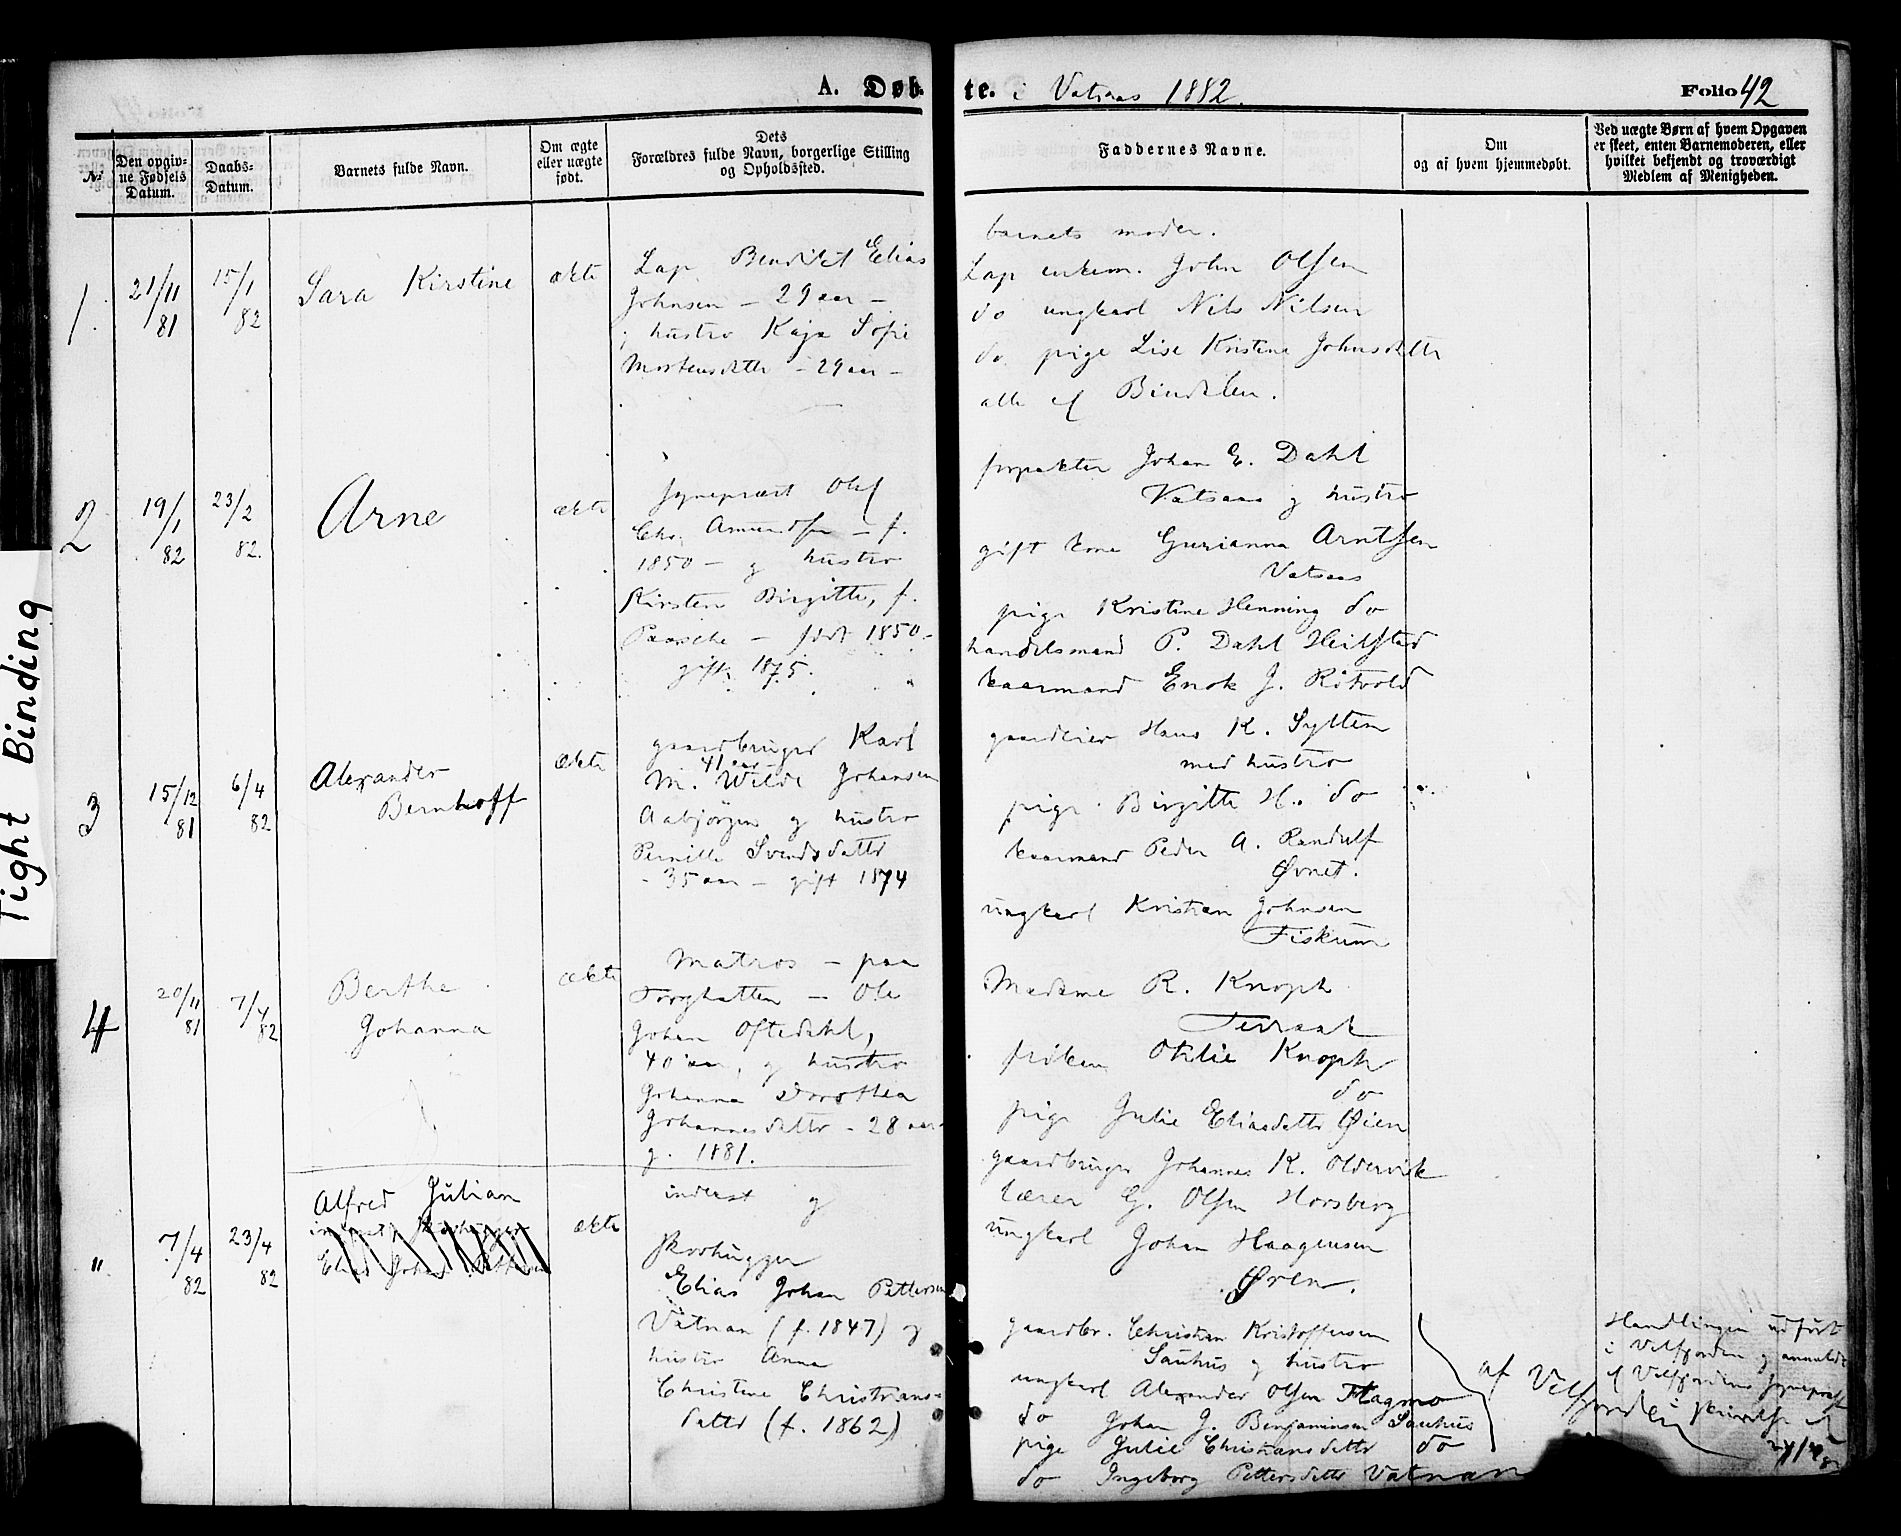 A. Døb-
te. i Vatsaas 1882.
Folio 42
№
Den opgiv-
ne Fødsels
Datum.
Daabs-
Datum.
Barnets fulde Navn.
Om ægte
eller uægte
født.
Dets
Forældres fulde Navn, borgerlige Stilling
og Opholdssted.
Faddernes Navne.
Om
og af hvem hjemmedøbt.
Ved uægte Børn af hvem Opgaven
er skeet, enten Barnemoderen, eller
hvilket bekjendt og troværdigt
Medlem af Menigheden.
1.
21/11
81
15/1
82
Sara Kirstine
ækte
Lap Elias
Johnsen – 29 aar –
hustro Kaja Sofie
Mortensdatter – 29 aar –
barnets moder.
Lap enkem. John Olsen
do ungkarl Nils Nilsen
do pige Lise Kristine Johnsdatter
alle af Bindalen.
2
19/1
82
23/2
82.
Arne
ækte
sogneprest Oluf
Chr. Amundsen – f.
1850 – og hustro
Kirsten Birgitte, f.
Paasche – født 1850 –
gift 1875.
forpakter Johan E. Dahl
Vatsaas og hustro
gift kone Gurianna Arntsen
Vatsaas
pige Kristine Henning do
handelsmand P. Dahl Heilstad
kaarmand Enok J.
3
15/12
81
6/4
82
Alexander
Bernhoff
Ækte
gaardbruger Karl
41 aar
M. Wilde Johansen
Aabjørgen og hustro
Pernille Svendsdatter
– 35 aar – gift 1874
gaardeier Hans K. Sylten
med hustro
pige Birgitte H. do
kaarmand Peder A. Randulf
Øvnet.
ungkarl Kristian Johnsen
Fiskum
4
20/11
81
7/4
82
Berthe
Johanna
ækte
Matros – paa
Torghatten – Ole
Johan Oftedahl,
40 aar, og hustro
Johanna Dorothea
Johannesdatter – 28 aar –
g. 1881.
Madame R. Knoph
Terraak
frøken Otilie Knoph
do
pige Julie Eliasdatter Øien
gaardbruger Johannes K. Oldervik
lærer G. Olsen Horsberg
ungkarl Johan Haagensen
Øren.
"
7/4
82
23/4
82
Alfred Julian
Elias Johan
ækte
inderst og
skovhugger
Elias Johan Pettersen
Vatnan (f. 1847) og
hustro Anna
Christine Christians-
datter (f. 1862)
gaardbr. Christian Kristoffersen
Sauhus og hustro
ungkarl Alexander Olsen Flagmo
do Johan J. Benjaminsen Sauhus
pige Julie Christiansdatter do
do Ingeborg Pettersdatter Vatnan
af Velfjorden
Handlingen udført
i Velfjorden og anmeldt
af Velfjordens sognepræst
Tight Binding